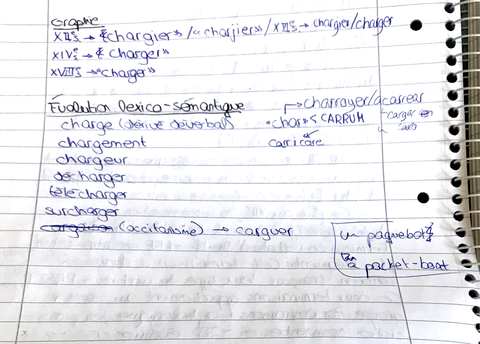 Graphie
XIIe s. → « chargier » / « charjier » / XIIe s. → chargier/charger
XIVe s. → « charger »
XVIIIs → "charger"
Évolution lexico-sémantique
charge (dérivé déverbal)
chargement
chargeur
décharger
télécharger
surcharger
(occitanisme) → carguer
→ charroyer/acarrear
char < CARRUM
carricare
cargar en
un paquebot
a packet-boat